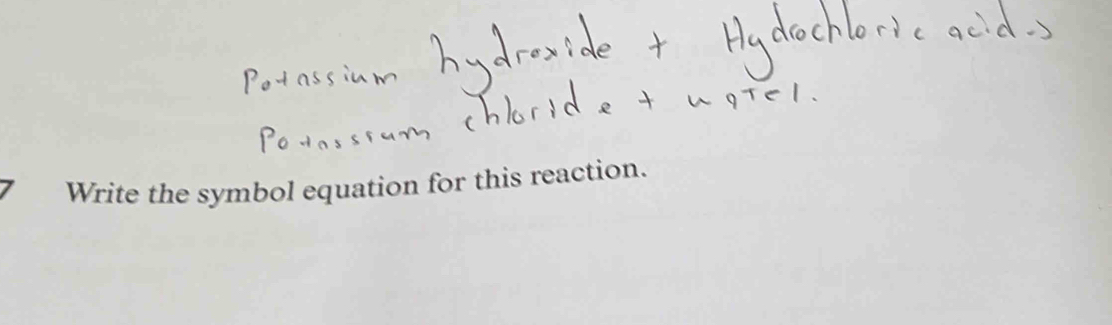 Potassium hydroxide + Hydrochloric acid →
Potassium chloride + water.
7 Write the symbol equation for this reaction.